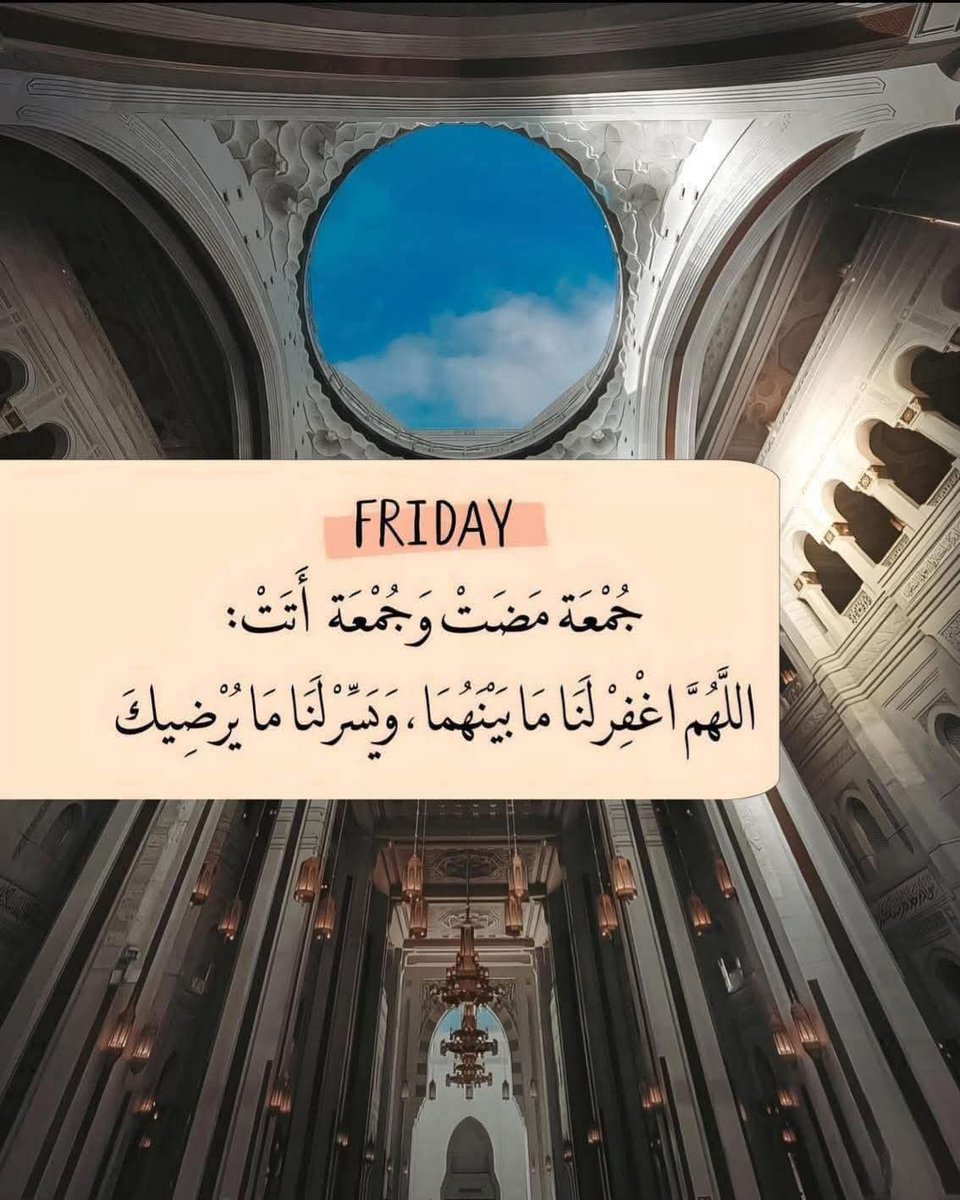 FRIDAY
جُمْعَة مَضَتْ وَجُمْعَة أَتَتْ:
اللَّهُمَّ اغْفِرْ لَنَا مَا بَيْنَهُمَا، وَيَسِّرْ لَنَا مَا يُرْضِيكَ